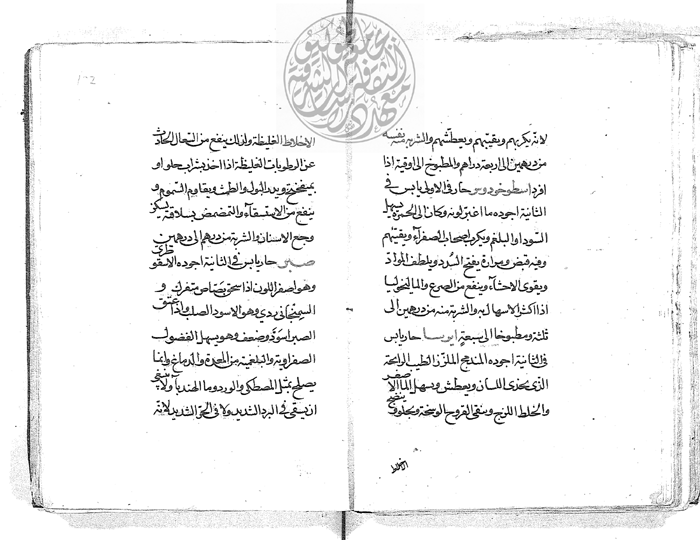 لانه يكربهم ويقيئهم ويعطشهم والشربة منه نفسه
من درهمين الى اربعة دراهم والمطبوخ الى اوقية اذا
افرد اسطوخودوس حار فى الاولى يابس فى
الثانية اجوده ما اغبر لونه وكان الى الحمرة يسهل
السودا والبلغم ويكرب اصحاب الصفرآء ويقيئهم
وفيه قبض ومرارة يفتح السدد ويلطف المواد
ويقوى الاحشآء وينفع من الصرع والمالنخوليا
اذا اكثر الاسهال به والشربة منه من درهمين الى
ثلثة ومطبوخا الى سبعة ايرسا حار يابس
فى الثانية اجوده المندمج الملزز الطيب الرايحة
الذى يحذى اللسان ويعطش ويسهل المآ الاصفر
والخلط اللزج وينقى القروح الوسخة ويجلو وينضج
الاخلاط
الاخلاط الغليظة ولذلك ينفع من السعال الحادث
عن الرطوبات الغليظة اذا اخذ بشراب حلو او
بميفختج ويدر البول والطمث ويقاوم السموم و
ينفع من الاستسقآء والتمضمض بسلاقته يسكن
وجع الاسنان والشربة من درهم الى درهمين
صبر حار يابس فى الثانية اجوده الاسقوطرى
وهو اصفر اللون اذا سحق بصاص متفرك و
السمنجانى ردى وهو الاسود الصلب واذا عتق
الصبر اسود وضعف وهو يسهل الفضول
الصفراوية والبلغمية من المعدة والدماغ وانما
يصلح بمثل المصطكى والورد وما الهندبآ ولا ينبغى
ان يسقى فى البرد الشديد ولا فى الحر الشديد لانه